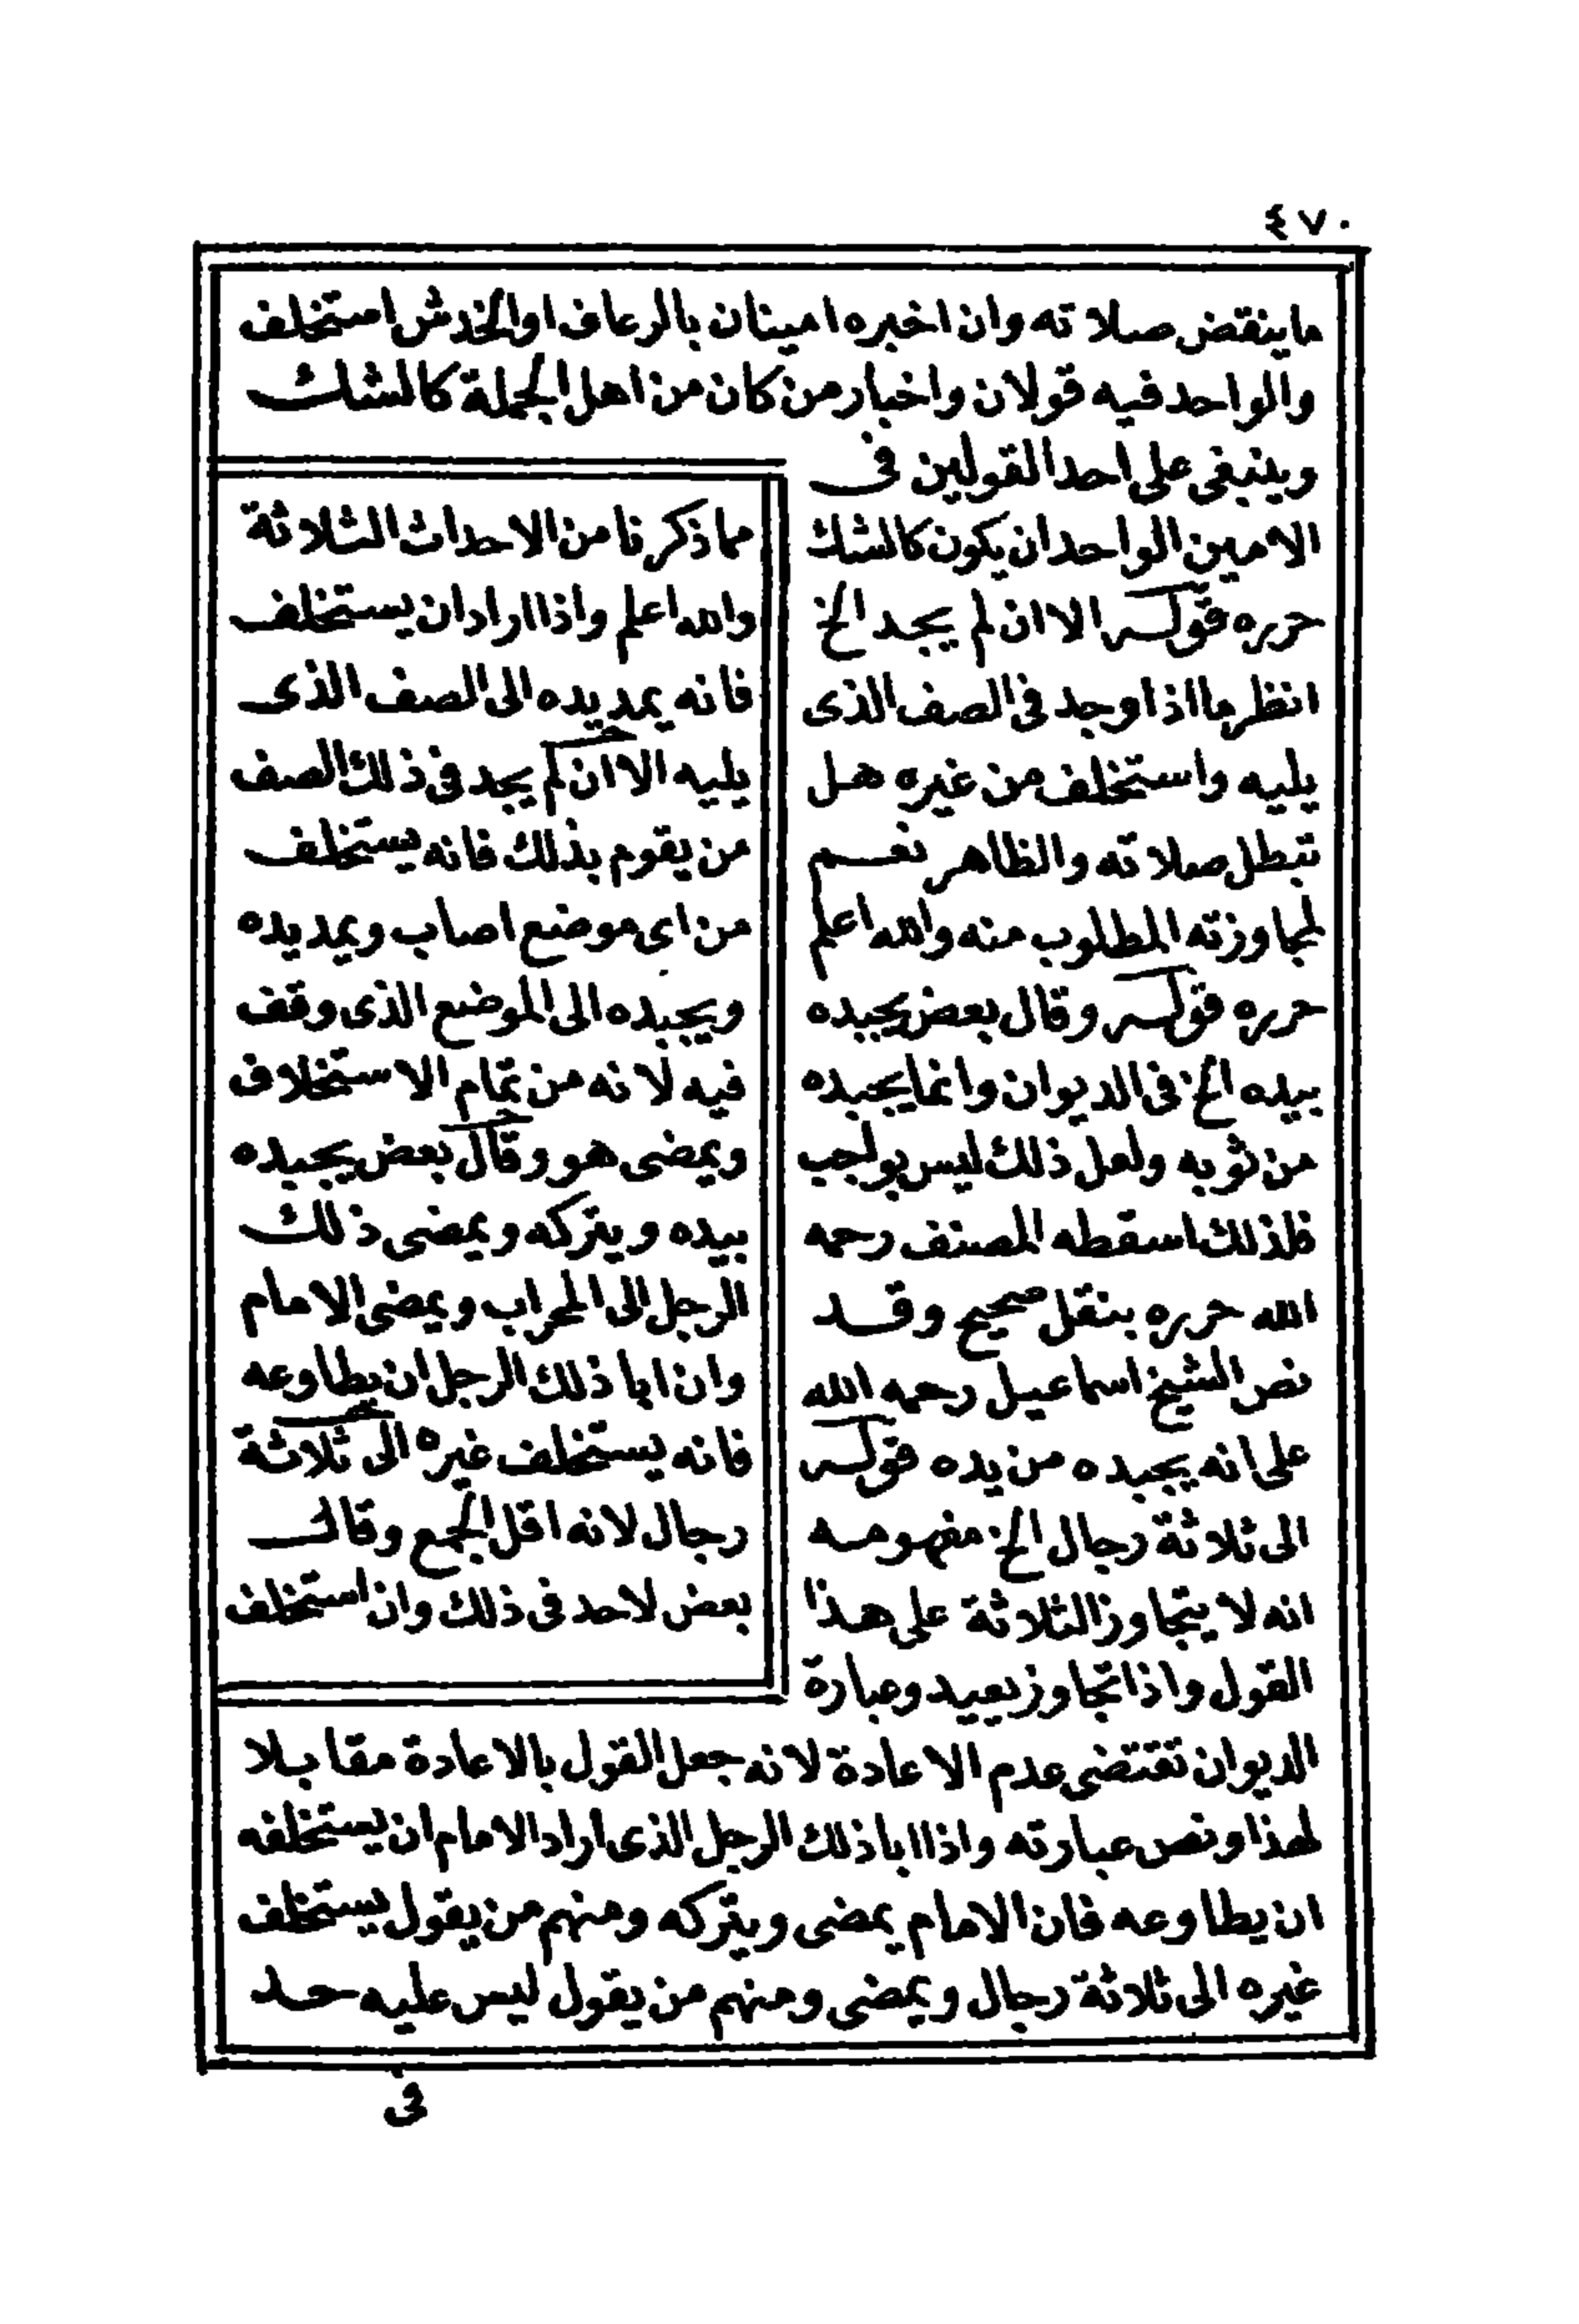 ٤٧٠
ما ينقض صلاته وان اخبره امينان بالرعاف او الخدش استخلف
والواحد فيه قولان واخبار من كان من اهل الجملة كالشك
وينبغى على احد القولين فى
الامين الواحد ان يكون كالشك
حرره قوله الا ان لم يجد الخ
انظر ما اذا وجد فى الصف الذى
يليه واستخلف من غيره هل
تبطل صلاته والظاهر نعم
لمجاوزته المطلوب منه والله اعلم
حرره قوله وقال بعض يجبده
بيده الخ فى الديوان وانما يجبده
من ثوبه ولعل ذلك ليس بواجب
فلذلك اسقطه المصنف رحمه
الله حرره بنقل صحيح وقد
نص الشيخ اسماعيل رحمه الله
على انه يجبده من يده قوله
الى ثلاثة رجال الخ مفهومه
انه لا يتجاوز الثلاثة على هذا
القول واذا تجاوز يعيد وعبارة
مما ذكرنا من الاحداث الثلاثة
والله اعلم واذا اراد ان يستخلف
فانه يمد يده الى الصف الذى
يليه الا ان لم يجد فى ذلك الصف
من يقوم بذلك فانه يستخلف
من اى موضع اصاب ويمد يده
ويجبده الى الموضع الذى وقف
فيه لانه من تمام الاستخلاف
ويمضى هو وقال بعض يجبده
بيده ويتركه ويمضى ذلك
الرجل الى المحراب ويمضى الامام
وان ابا ذلك الرجل ان يطاوعه
فانه يستخلف غيره الى ثلاثة
رجال لانه اقل الجمع وقال
بعض لاحد فى ذلك وان استخلف
الديوان تقتضى عدم الاعادة لانه جعل القول بالاعادة مقابلا
لهذا ونص عبارته واذا ابا ذلك الرجل الذى اراد الامام ان يستخلفه
ان يطاوعه فان الامام يمضى ويتركه ومنهم من يقول يستخلف
غيره الى ثلاثة رجال ويمضى ومنهم من يقول ليس عليه حد
فى